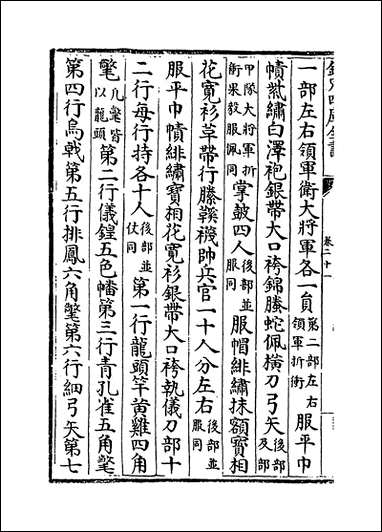 欽定四庫全書
卷二十一
一部左右領軍衛大將軍各一員第二部左右領軍折衝服平巾
幘紫繡白澤袍銀帶大口袴錦螣蛇佩橫刀弓矢後部及部
甲隊大將軍折衝果毅服佩同掌鼓四人後部並服同服帽緋繡抹額寶相
花寬衫草帶行縢鞵襪帥兵官一十人分左右後部並服同
服平巾幘緋繡寶相花寬衫銀帶大口袴執儀刀部十
二行每行持各十人後部並仗同第一行龍頭竿黃雞四角
氅凡氅皆以龍頭第二行儀鍠五色幡第三行青孔雀五角氅
第四行烏戟第五行排鳳六角氅第六行細弓矢第七